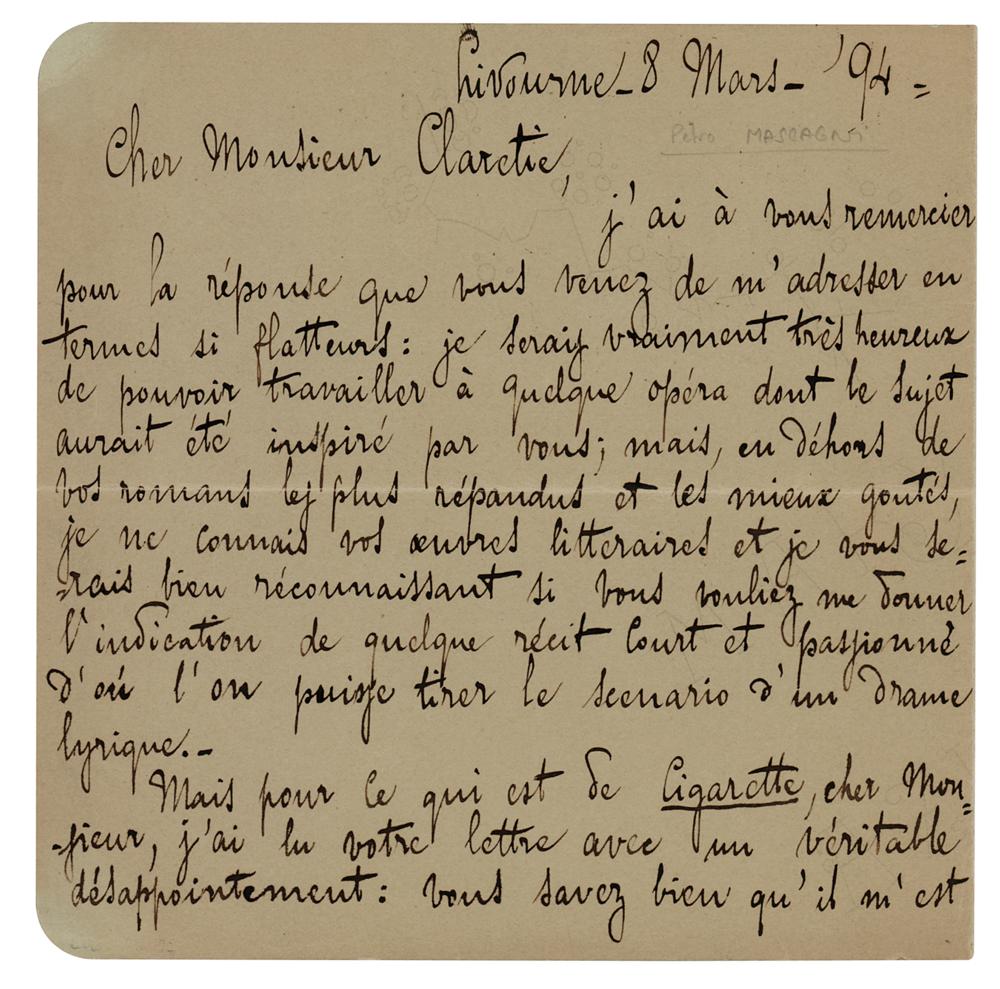 Livourne - 8 Mars - '94 =
Petro MASCAGNI
Cher Monsieur Claretie,
j'ai à vous remercier
pour la réponse que vous venez de m'adresser en
termes si flatteurs: je seray vraiment très heureux
de pouvoir travailler à quelque opéra dont le sujet
aurait été inspiré par vous; mais, en déhors de
vos romans les plus répandus et les mieux goutés,
je ne connais vos œuvres litteraires et je vous se=
=rais bien réconnaissant si vous vouliez me donner
l'indication de quelque récit court et passionné
d'où l'on puisse tirer le scenario d'un drame
lyrique. -
Mais pour ce qui est de Cigarette, cher Mon=
=sieur, j'ai lu votre lettre avec un véritable
désappointement: vous savez bien qu'il m'est